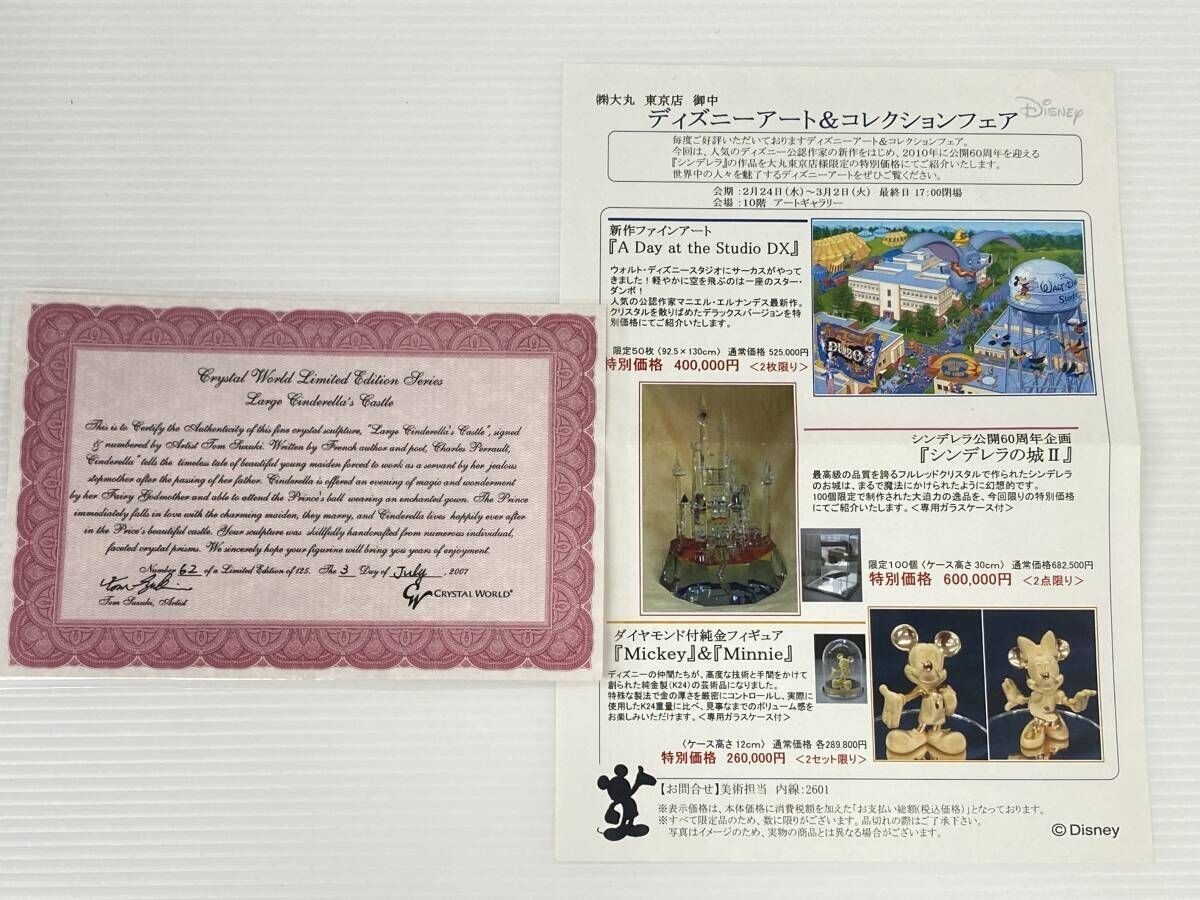 Crystal World Limited Edition Series
Large Cinderella's Castle
This is to Certify the Authenticity of this fine crystal sculpture, "Large Cinderella's Castle", signed
& numbered by Artist Tom Suzuki. Written by French author and poet, Charles Perrault,
Cinderella" tells the timeless tale of beautiful young maiden forced to work as a servant by her jealous
stepmother after the passing of her father. Cinderella is offered an evening of magic and wonderment
by her Fairy Godmother and able to attend the Prince's ball wearing an enchanted gown. The Prince
immediately falls in love with the charming maiden, they marry, and Cinderella lives happily ever after
in the Price's beautiful castle. Your sculpture was skillfully handcrafted from numerous individual,
faceted crystal prisms. We sincerely hope your figurine will bring you years of enjoyment.
Number 62 of a Limited Edition of 125. The 3 Day of July, 2007
Tom Suzuki, Artist
CW CRYSTAL WORLD®
㈱大丸 東京店 御中
ディズニーアート&コレクションフェア
Disney
毎度ご好評いただいておりますディズニーアート&コレクションフェア。
今回は、人気のディズニー公認作家の新作をはじめ、2010年に公開60周年を迎える
『シンデレラ』の作品を大丸東京店様限定の特別価格にてご紹介いたします。
世界中の人々を魅了するディズニーアートをぜひご覧ください。
会期:2月24日(水)~3月2日(火) 最終日 17:00閉場
会場:10階 アートギャラリー
新作ファインアート
『A Day at the Studio DX』
ウォルト・ディズニースタジオにサーカスがやって
きました!軽やかに空を飛ぶのは一座のスター・
ダンボ!
人気の公認作家マニエル・エルナンデス最新作。
クリスタルを散りばめたデラックスバージョンを特
別価格にてご紹介いたします。
限定50枚 (92.5×130cm) 通常価格 525,000円
特別価格 400,000円 <2枚限り>
DUMBO
WALT DISNEY
Studio
シンデレラ公開60周年企画
『シンデレラの城Ⅱ』
最高級の品質を誇るフルレッドクリスタルで作られたシンデレラ
のお城は、まるで魔法にかけられたように幻想的です。
100個限定で制作された大迫力の逸品を、今回限りの特別価格
にてご紹介いたします。<専用ガラスケース付>
限定100個 (ケース高さ30cm) 通常価格682,500円
特別価格 600,000円 <2点限り>
ダイヤモンド付純金フィギュア
『Mickey』&『Minnie』
ディズニーの仲間たちが、高度な技術と手間をかけて
創られた純金製(K24)の芸術品になりました。
特殊な製法で金の厚さを厳密にコントロールし、実際に
使用したK24重量に比べ、見事なまでのボリューム感を
お楽しみいただけます。<専用ガラスケース付>
(ケース高さ12cm) 通常価格 各289,800円
特別価格 260,000円 <2セット限り>
【お問合せ】美術担当 内線:2601
※表示価格は、本体価格に消費税額を加えた「お支払い総額(税込価格)」となっております。
※すべて限定品のため、数に限りがございます。品切れの際はご了承下さい。
写真はイメージのため、実物の商品とは異なる場合がございます。
©Disney